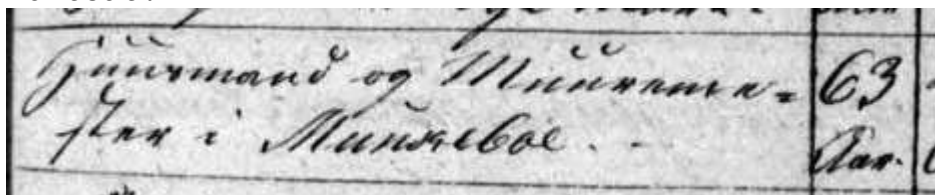 Huusmand og Muureme-
ster i Munkeboe.
63
Aar.